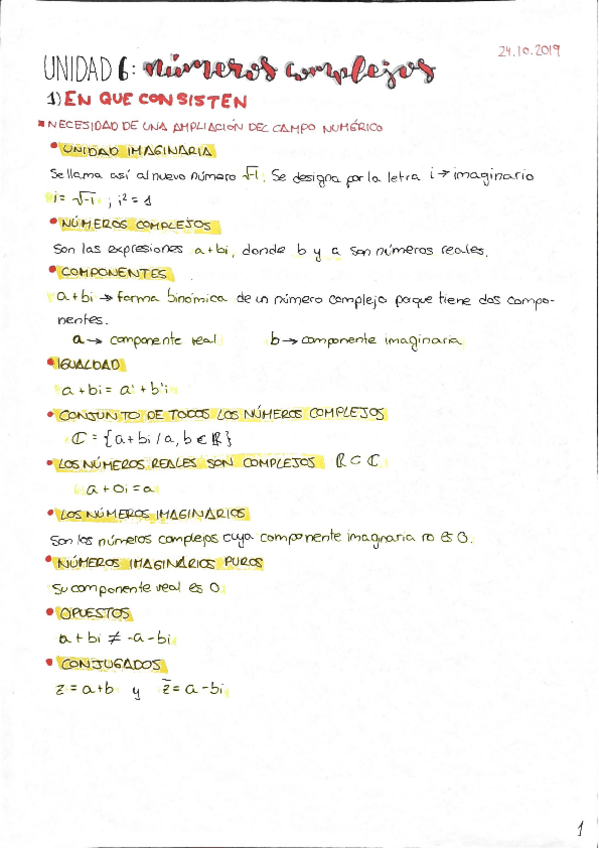 24.10.2019
UNIDAD 6: números complejos
1) EN QUE CONSISTEN
NECESIDAD DE UNA AMPLIACIÓN DEL CAMPO NUMÉRICO
• UNIDAD IMAGINARIA
Se llama así al nuevo número √-1. Se designa por la letra i → imaginario
i = √-1 ; i² = 1
• NÚMEROS COMPLEJOS
Son las expresiones a+bi, donde b y a son números reales.
• COMPONENTES
a+bi → forma binómica de un número complejo porque tiene dos compo-
nentes.
a → componente real b → componente imaginaria
• IGUALDAD
a + bi = a' + b'i
• CONJUNTO DE TODOS LOS NÚMEROS COMPLEJOS
ℂ = {a+bi / a, b ∈ ℝ}
• LOS NÚMEROS REALES SON COMPLEJOS ℝ ⊂ ℂ
a + 0i = a
• LOS NÚMEROS IMAGINARIOS
Son los números complejos cuya componente imaginaria no es 0.
• NÚMEROS IMAGINARIOS PUROS
Su componente real es 0
• OPUESTOS
a + bi ≠ -a - bi
• CONJUGADOS
z = a+b y z̄ = a - bi
1